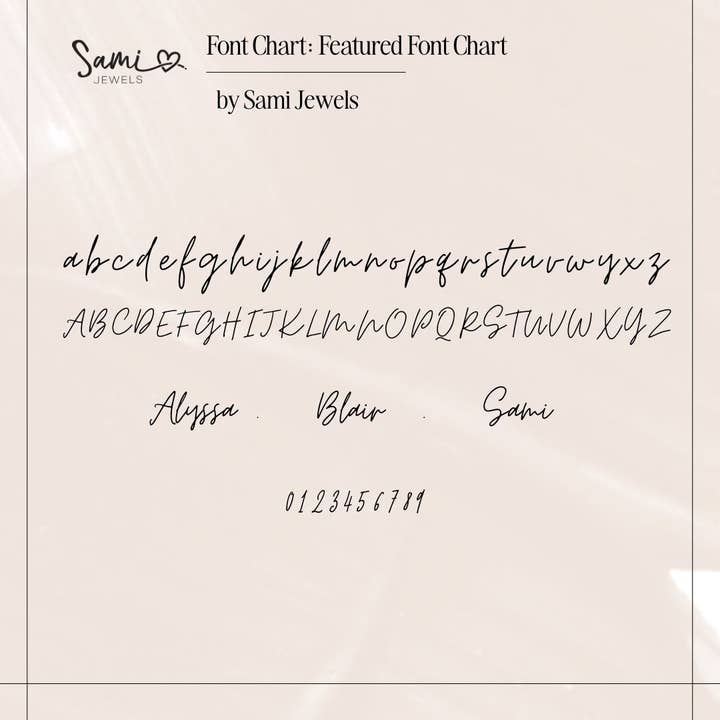 Sami
JEWELS
Font Chart: Featured Font Chart
by Sami Jewels
abcdefghijklmnopqrstuvwyxz
ABCDEFGHIJKLMNOPQRSTUVWXYZ
Alyssa . Blair . Sami
0123456789